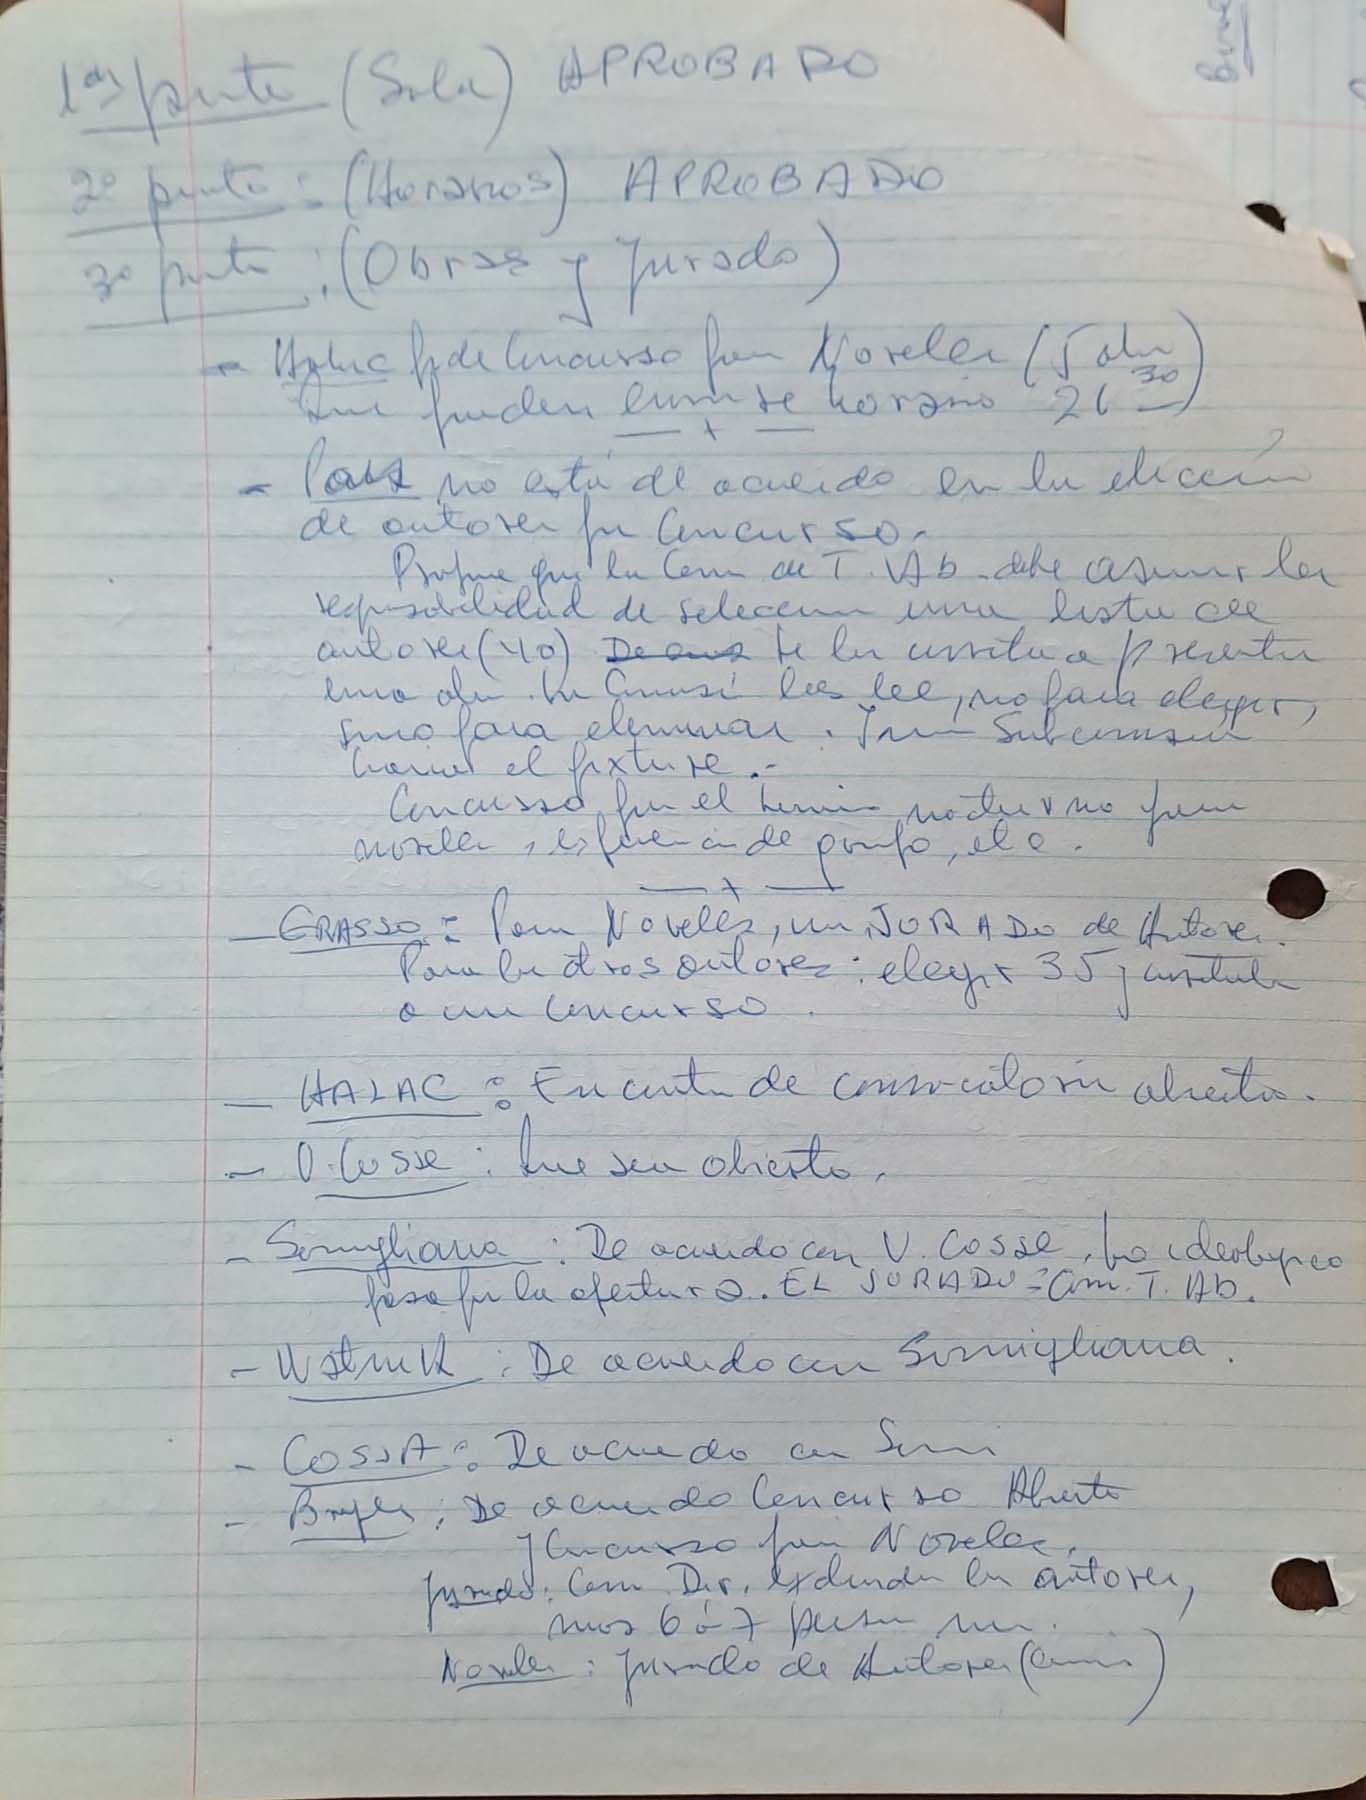 1er punto (Sala) APROBADO
2º punto: (Horarios) APROBADO
3º punto: (Obras y Jurado)
- Halac pide Concurso para Noveles (5 obras)
que pueden horario 21 30
- no está de acuerdo en la elección
de autores por Concurso.
Propone que la Com de T. Ab. debe asumir la
responsabilidad de seleccionar una lista de
autores (40) se los invita a presentar
una obra. La Comisión las lee, no para elegir,
sino para eliminar. Subcomisión
el fixture.-
Concurso por el nocturno para
noveles, experiencia de grupo, etc.
+
- GRASSO: Para Noveles, un JURADO de Autores.
Para los otros autores: elegir 35 y invitarlos
a un Concurso.
- HALAC: En contra de convocatoria abierta.
- V. Cosse: Que sea abierto.
- Somigliana: De acuerdo con V. Cosse, lo ideológico
pasa por la apertura. EL JURADO = Com. T. Ab.
- : De acuerdo con Somigliana.
- COSSA: De acuerdo con Somi
- : De acuerdo Concurso Abierto
y Concurso para Noveles.
Jurado: Com Dir. los autores,
unos 6 ó 7 personas.
Noveles: Jurado de Autores